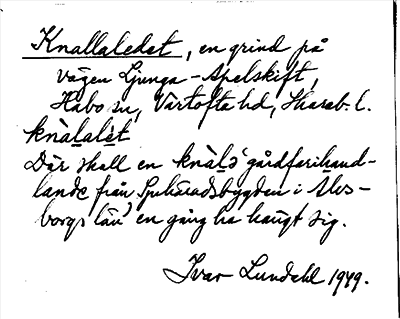 Knallaledet, en grind på
vägen Ljunga-Apelskift,
Habo sn, Vartofta hd, Skarab. l.
knàlalèt
Där skall en knàlə gårdfarihand-
lande från Sjuhäradsbygden i Älvs-
borgs län, en gång ha hängt sig.
Ivar Lundahl 1949.